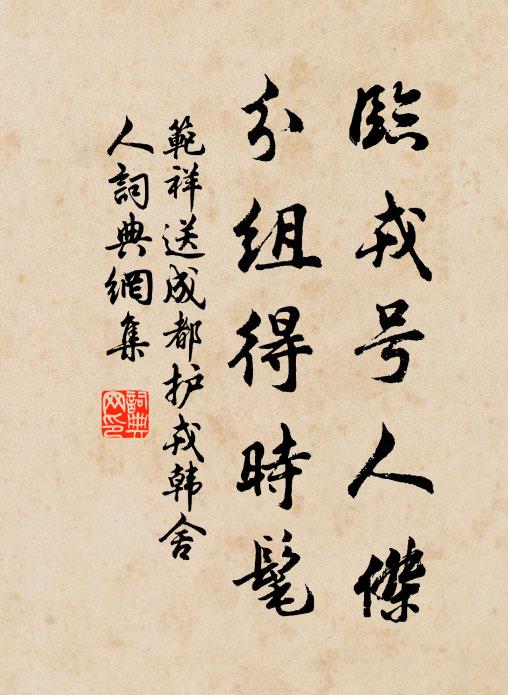 臨戎号人傑
分組得時髦
範祥送成都护戎韩舍
人詞典網集
詞典网印